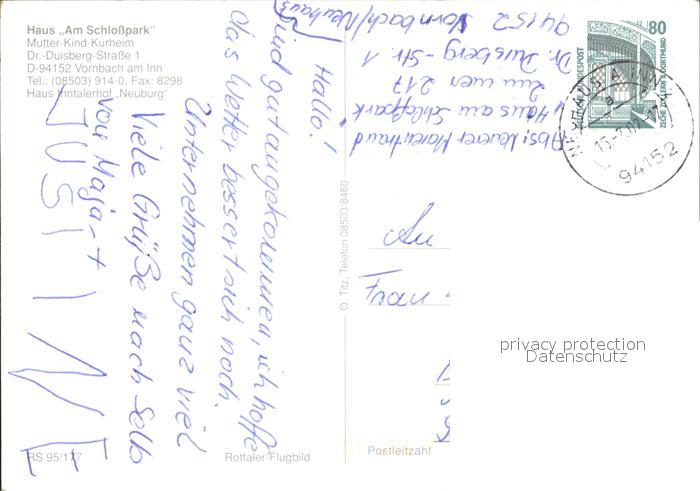 Haus „Am Schloßpark"
Mutter-Kind-Kurheim
Dr.-Duisberg-Straße 1
D-94152 Vornbach am Inn
Tel.: (08503) 914-0, Fax: 8298
Haus Inntalerhof „Neuburg"
Hallo!
sind gut angekommen, ich hoffe
das Wetter bessert sich noch.
Unternehmen ganz viel
Viele Grüße nach Selb
von Maja +
JUSTINE
Abs:
Haus am Schloßpark
Zimmer 217
Dr. Duisberg-Str. 1
94152 Vornbach/Neuhaus
80
DEUTSCHE BUNDESPOST
ZECHE ZOLLERN II, DORTMUND
NEUHAUS A INN
a
94152
An
Frau
privacy protection
Datenschutz
O. Titz, Telefon 08503/8460
Postleitzahl
RS 95/177
Rottaler-Flugbild